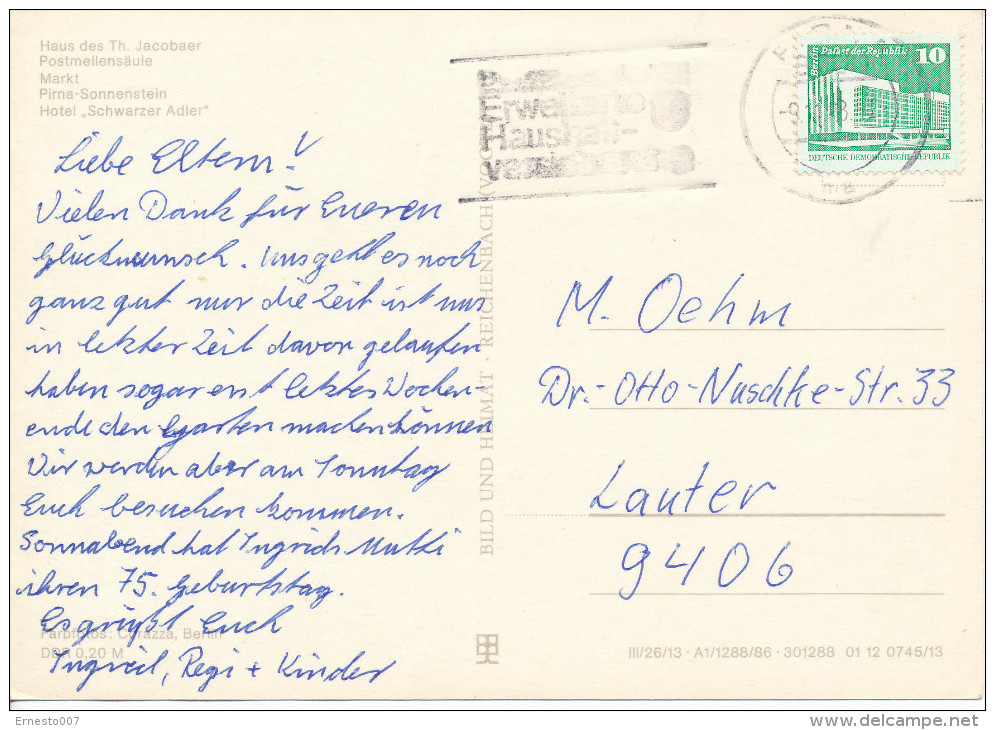 Haus des Th. Jacobaer
Postmeilensäule
Markt
Pirna-Sonnenstein
Hotel „Schwarzer Adler"
Liebe Eltern!
Vielen Dank für Eueren
Glückwunsch. Uns geht es noch
ganz gut nur die Zeit ist uns
in letzter Zeit davon gelaufen
haben sogar erst letztes Wochen-
ende den Garten machen können
Wir werden aber am Sonntag
Euch besuchen kommen.
Sonnabend hat Ingrids Mutti
ihren 75. Geburtstag.
Es grüßt Euch
Ingrid, Regi + Kinder
Farbfotos: Corazza, Berlin
DDR 0,20 M
BILD UND HEIMAT · REICHENBACH (VOGTL
Erweiterte
Haushalt-
10
Berlin Palast der Republik
DEUTSCHE DEMOKRATISCHE REPUBLIK
M. Oehm
Dr.-Otto-Nuschke-Str. 33
Lauter
9406
III/26/13 · A1/1288/86 · 301288 01 12 0745/13
Ernesto007
www.delcampe.net